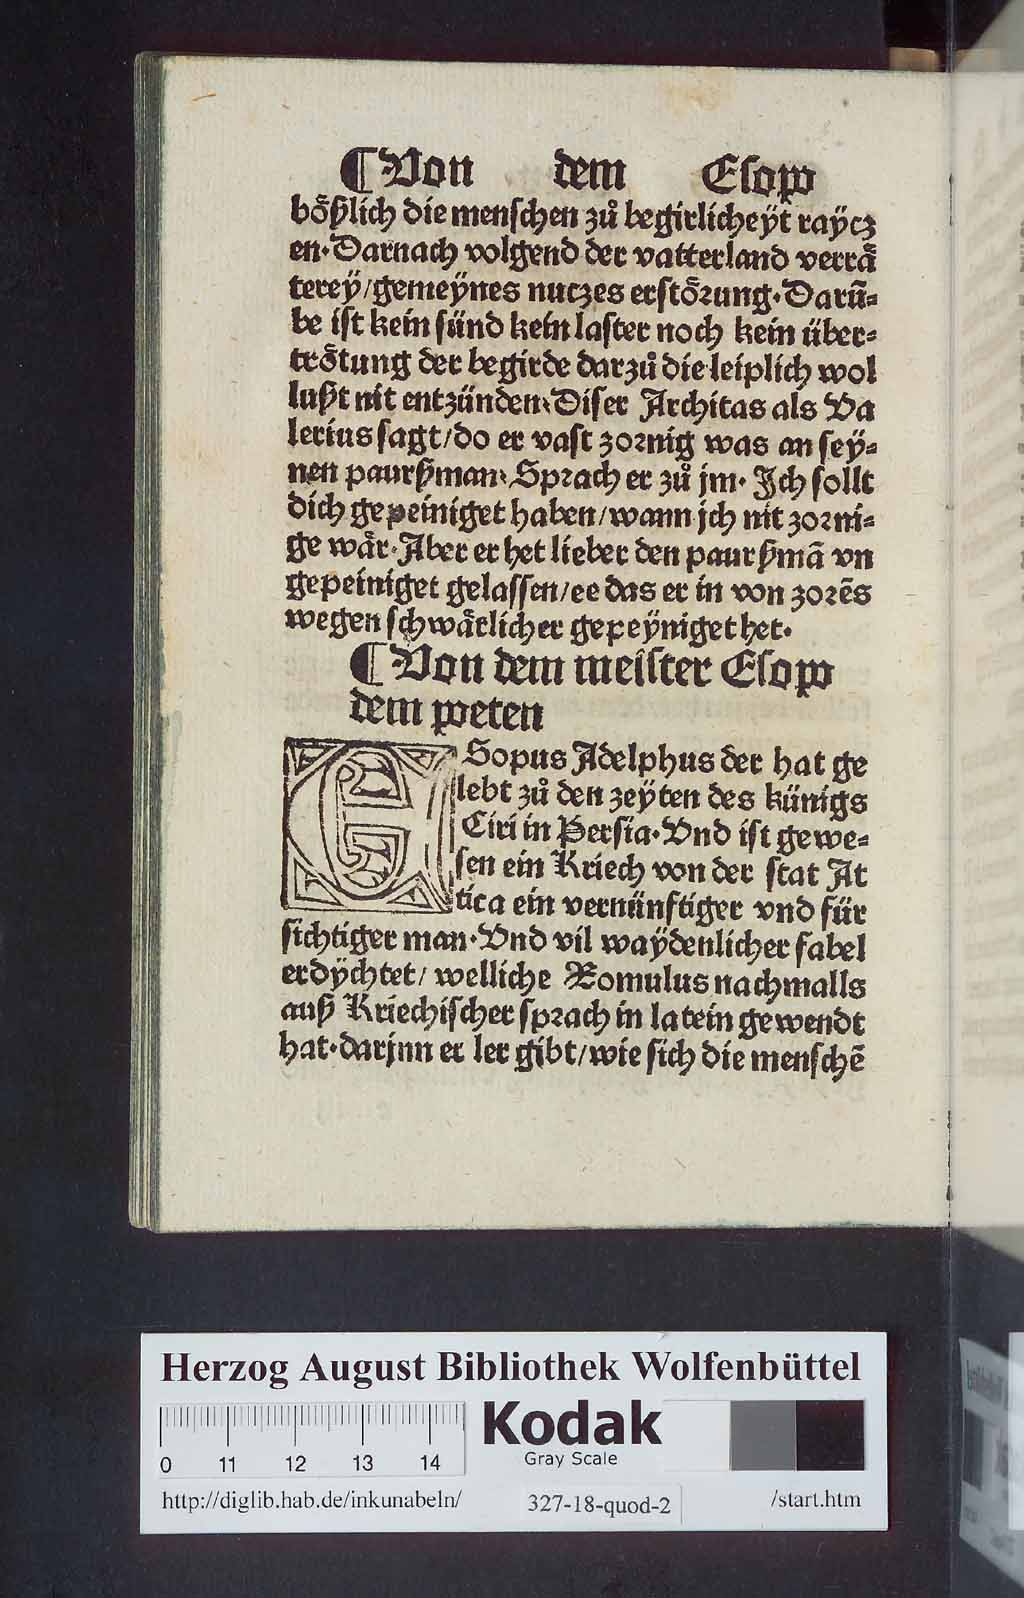 ¶Von dem Esopo
bőßlich die menschen zů begirlicheÿt raÿcz
en·Darnach volgend der vatterland verrå
tereÿ/gemeÿnes nuczes erstőrung·Darū=
be ist kein sünd kein laster noch kein über=
trőtung der begirde darzů die leiplich wol
lußt nit entzünden·Diser Architas als Va
lerius sagt/do er vast zornig was an seÿ=
nen paurßman·Sprach er zů jm·Ich sollt
dich gepeiniget haben/wann jch nit zorni=
ge wår·Aber er het lieber den paurßmā vn
gepeiniget gelassen/ee das er in von zorēs
wegen schwårlicher gepeÿniget het·
¶Von dem meister Esopo
dem poeten
ESopus Adelphus der hat ge
lebt zů den zeÿten des künigs
Ciri in Persia·Vnd ist gewe=
sen ein Kriech von der stat At
tica ein vernünftiger vnd für
sichtiger man·Vnd vil waÿdenlicher fabel
erdÿchtet/welliche Romulus nachmalls
auß Kriechischer sprach in latein gewendt
hat·darjnn er ler gibt/wie sich die menschē
Herzog August Bibliothek Wolfenbüttel
0 11 12 13 14
Kodak
Gray Scale
http://diglib.hab.de/inkunabeln/ 327-18-quod-2 /start.htm